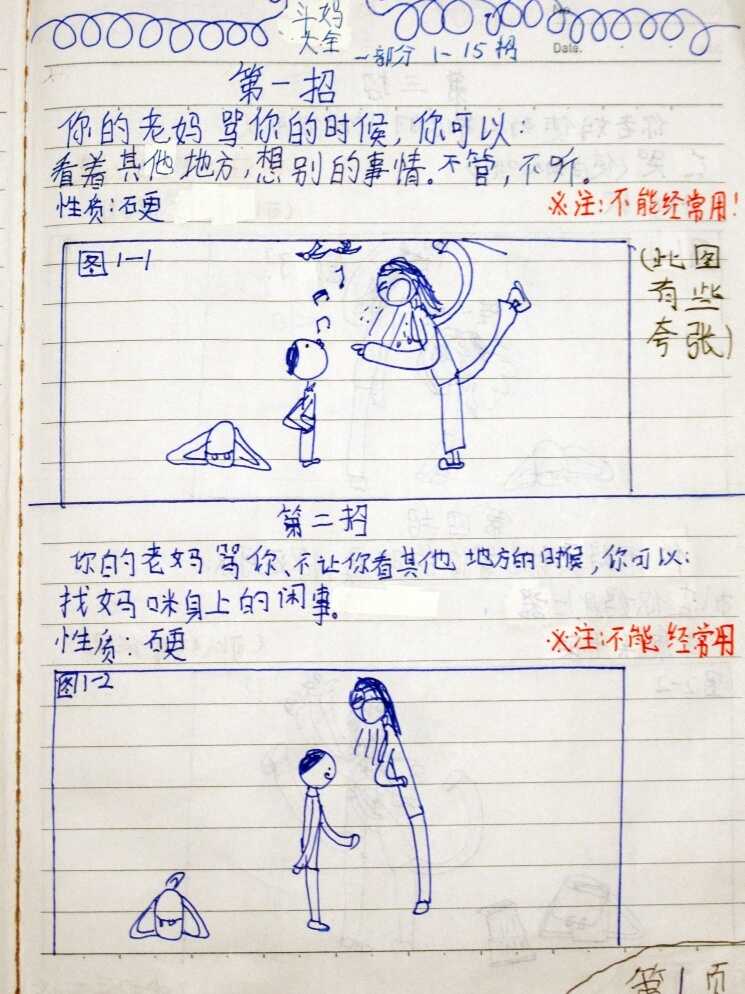 斗妈
大全
一部分 1-15招
No.
Date.
第一招
你的老妈骂你的时候,你可以:
看着其他地方,想别的事情。不管,不听。
性质:硬
※注:不能经常用!
图1-1
(此图
有些
夸张)
第二招
你的老妈骂你、不让你看其他地方的时候,你可以:
找妈咪身上的闲事。
性质:硬
※注:不能经常用
图1-2
第1页